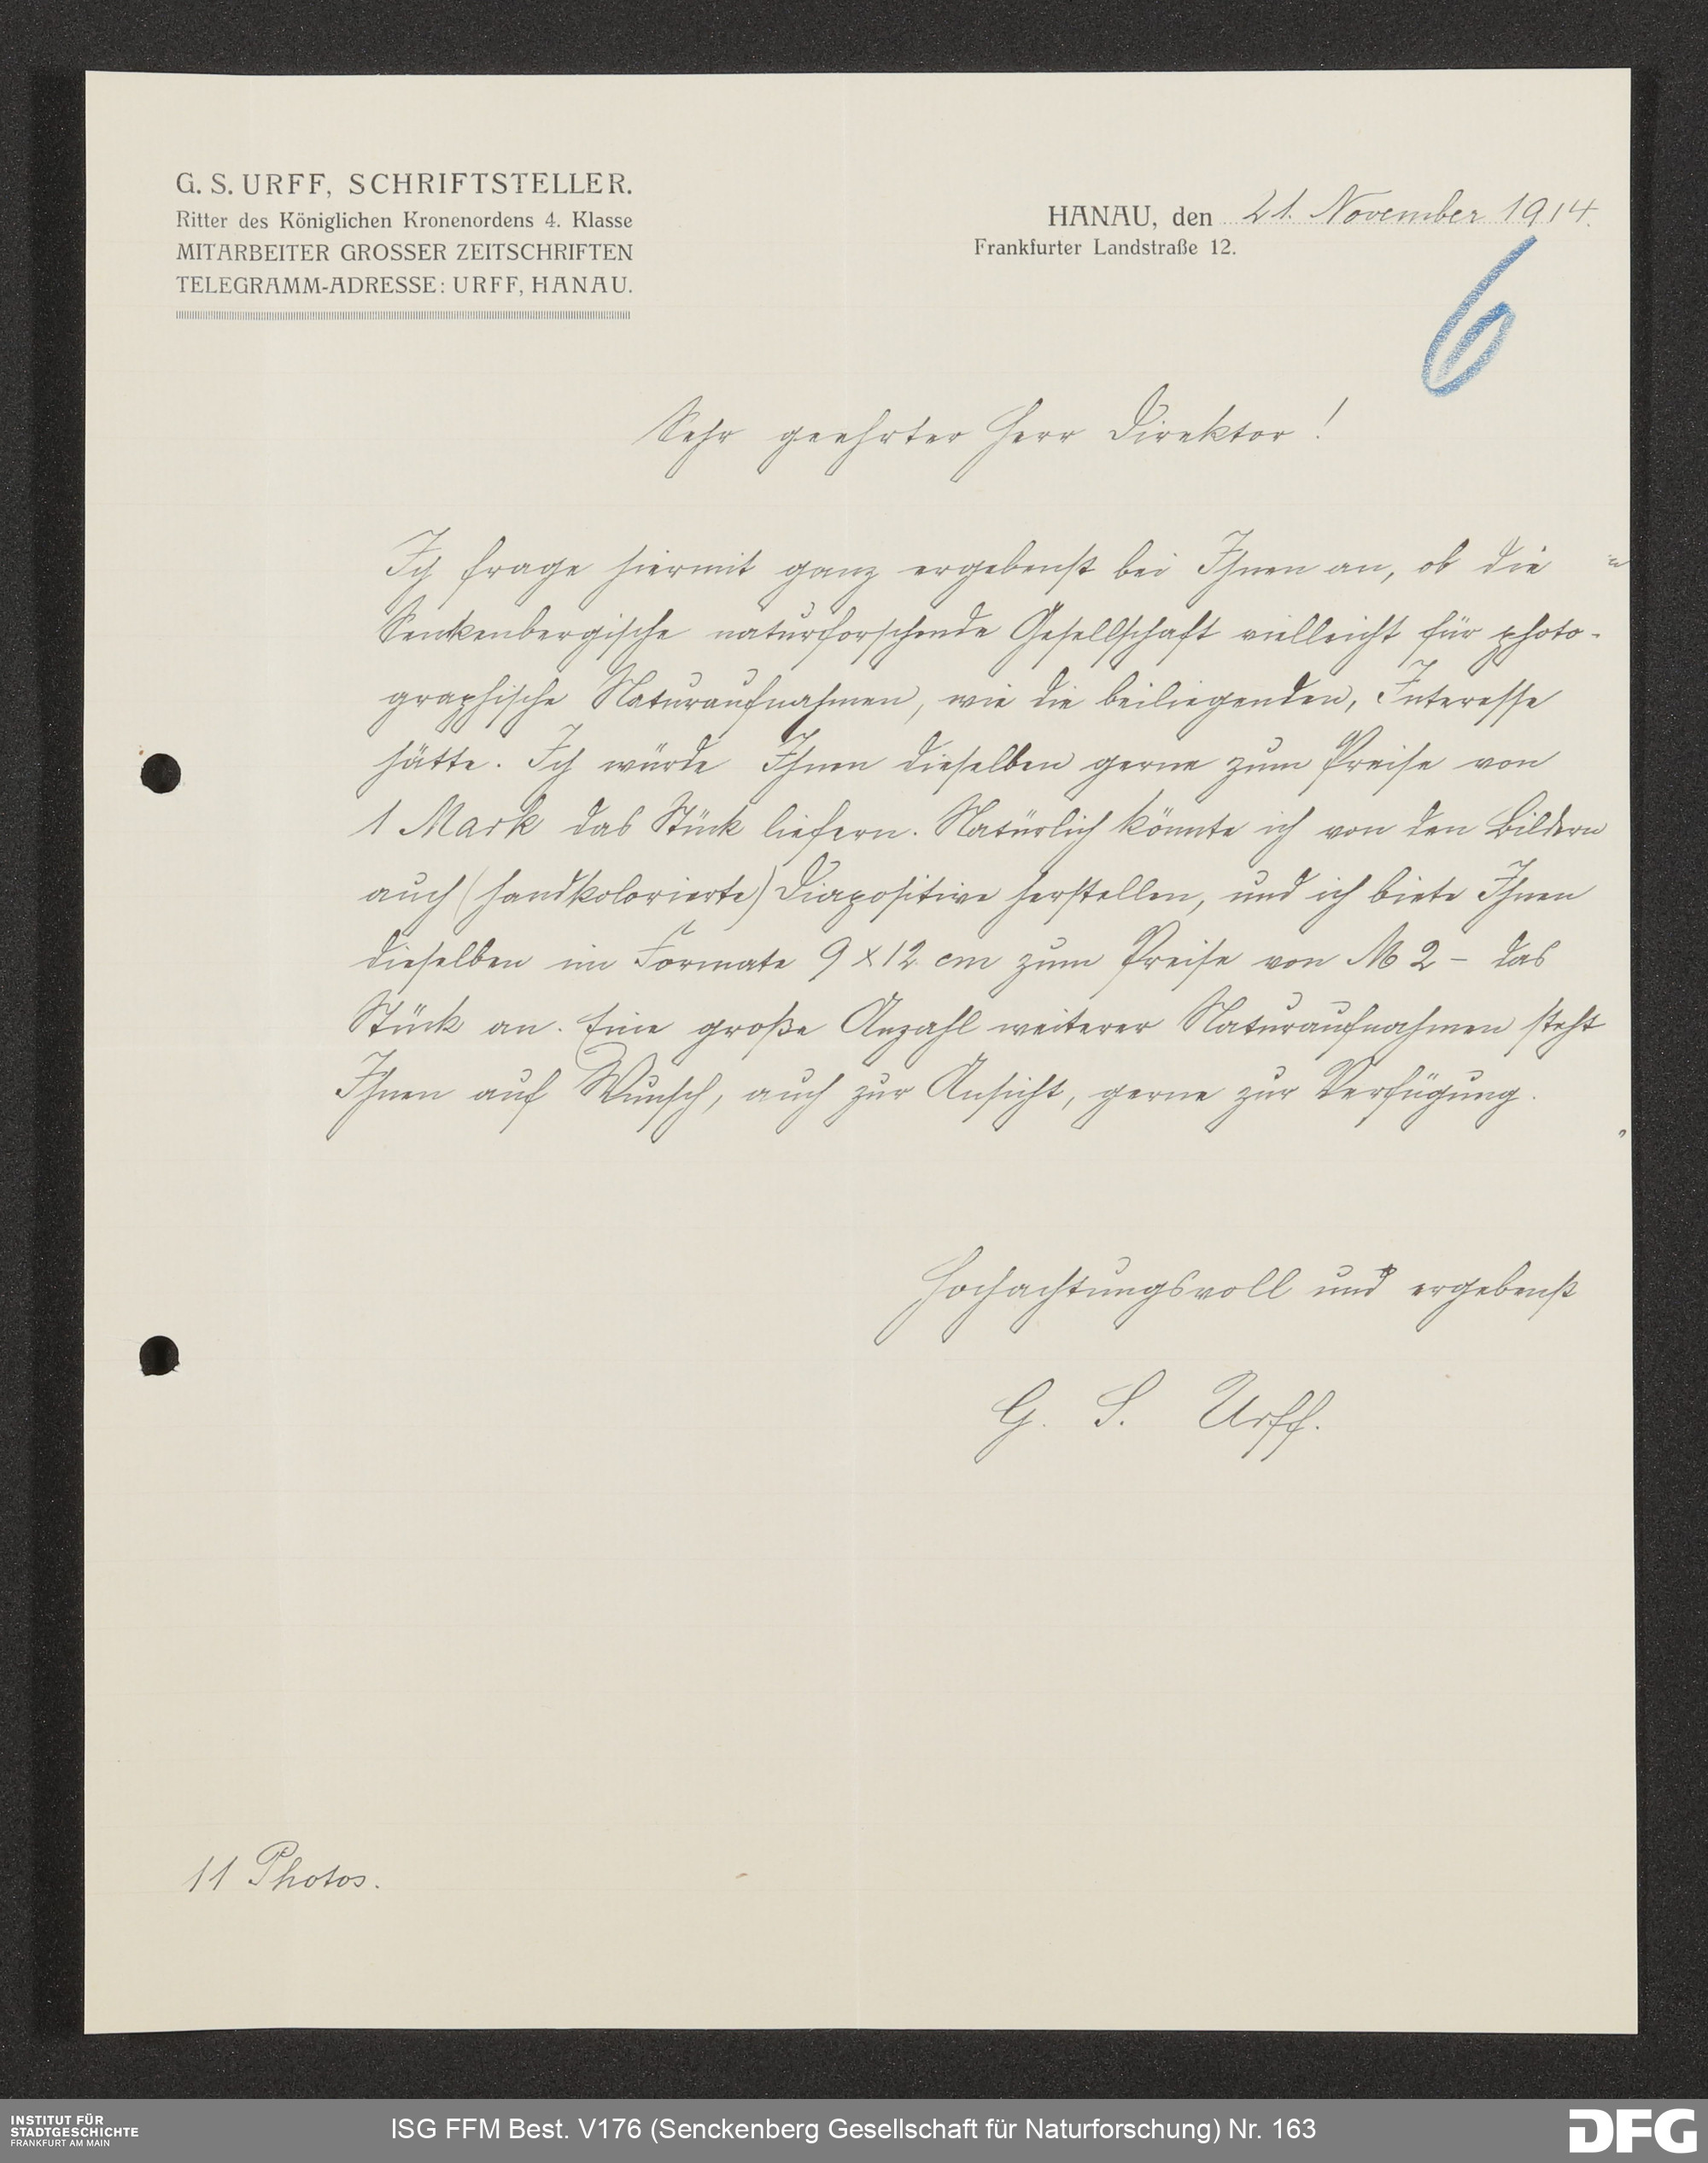 G. S. URFF, SCHRIFTSTELLER.
Ritter des Königlichen Kronenordens 4. Klasse
MITARBEITER GROSSER ZEITSCHRIFTEN
TELEGRAMM-ADRESSE: URFF, HANAU.
HANAU, den 21. November 1914.
Frankfurter Landstraße 12.
6
Sehr geehrter Herr Direktor!
Ich frage hiermit ganz ergebenst bei Ihnen an, ob die
Senkenbergische naturforschende Gesellschaft vielleicht für photo-
graphische Naturaufnahmen, wie die beiliegenden, Interesse
hätte. Ich würde Ihnen dieselben gerne zum Preise von
1 Mark das Stück liefern. Natürlich könnte ich von den Bildern
auch (handkolorierte) Diapositive herstellen, und ich biete Ihnen
dieselben im Formate 9 x 12 cm zum Preise von M 2 – das
Stück an. Eine große Anzahl weiterer Naturaufnahmen steht
Ihnen auf Wunsch, auch zur Ansicht, gerne zur Verfügung.
Hochachtungsvoll und ergebenst
G. S. Urff.
11 Photos.
INSTITUT FÜR
STADTGESCHICHTE
FRANKFURT AM MAIN
ISG FFM Best. V176 (Senckenberg Gesellschaft für Naturforschung) Nr. 163
DFG